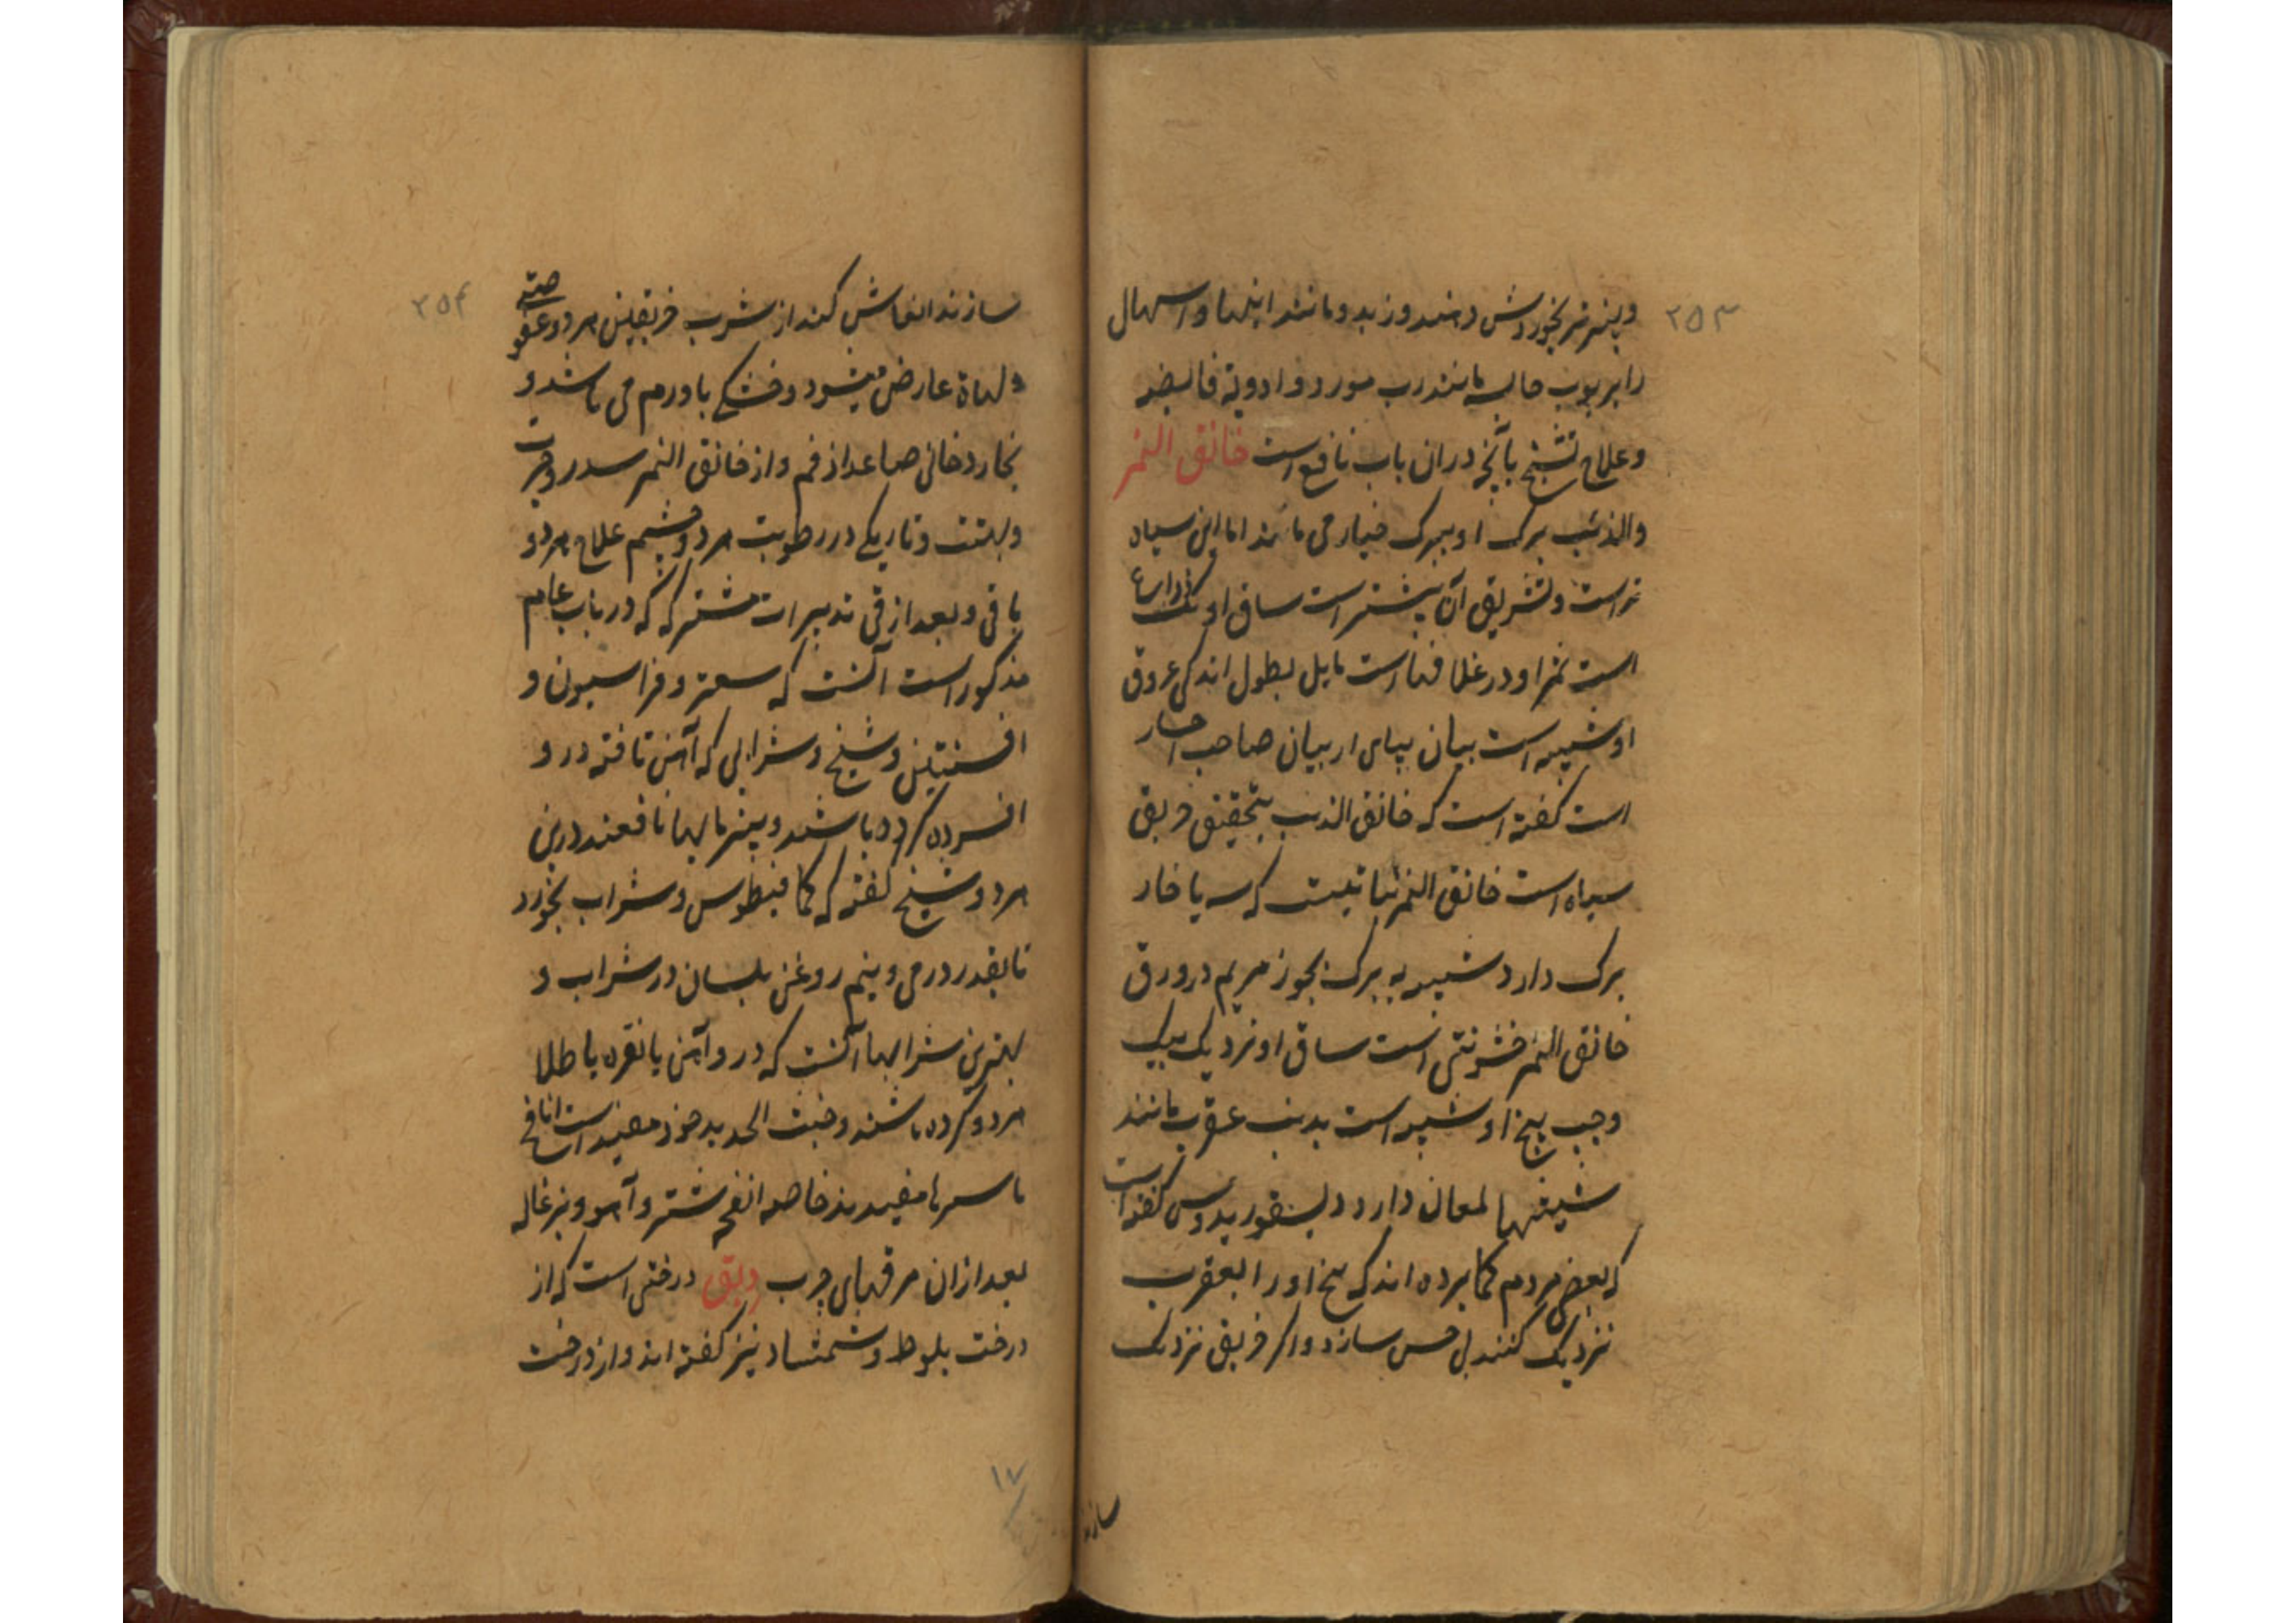 ۲۵۳
وپنیر تر بخوردش دهند وزبد ومانند اینها واسهال
را بربوب حابسه مانند رب مورد وادویهٔ قابضه
وعلاج تشنج بآنچه دران باب نافع است خانق النمر
والذئب برک او ببرک خیار می ماند اما این سیاه
تر است وتشریق آن بیشتر است ساق او یک ذراع
است ثمر او در غلافهاست مایل بطول اندکی عروق
او شبیه است بپای اربیان صاحب
است کفته است که خانق الذئب بتحقیق فریق
سیاه است خانق النمر نباتیست که سه یا چار
برک دارد شبیه به برک بخور مریم در ورق
خانق النمر خشونتی است ساق او نزدیک بیک
وجب بیخ او شبیه است بدنب عقرب مانند
شیشها لمعان دارد دیسقوریدوس کفته است
که بعضی مردم کمان برده اند که بیخ او را بعقرب
نزدیک کنند بی حس سازد واکر فریق نزدیک
سازند
۲۵۴
سازند انفاش کند از شرب فریقین هر دو عفوصته
ولهاة عارض میشود وخشکی با ورم می باشد و
بخار دخانی صاعد از فم واز خانق النمر سدر وحیرت
وبهتت وتاریکی در رطوبت هر دو چشم علاج هر دو
باقی وبعد از قی تدبیرات مشترکه که در باب عام
مذکور است آنست که سعتر وفراسیون و
افسنتین وشیح وشرابی که آهن تافته در و
افسرده کرده باشند وپنیر مایها نافعند درین
هر دو شیخ کفته که کمافیطوس وشراب بخورد
تا بقدر درمی ونیم روغن بلسان در شراب و
بهترین شرابها آنست که در و آهن یا نقره یا طلا
سرد کرده باشند وخبث الحدید خود مفید است انافح
باسرها مفیدند خاصه انفحه شتر وآهو وبزغاله
بعد ازان مرقهای چرب دبق درختی است که از
درخت بلوط وشمشاد نیز کفته اند واز درخت
۱۷